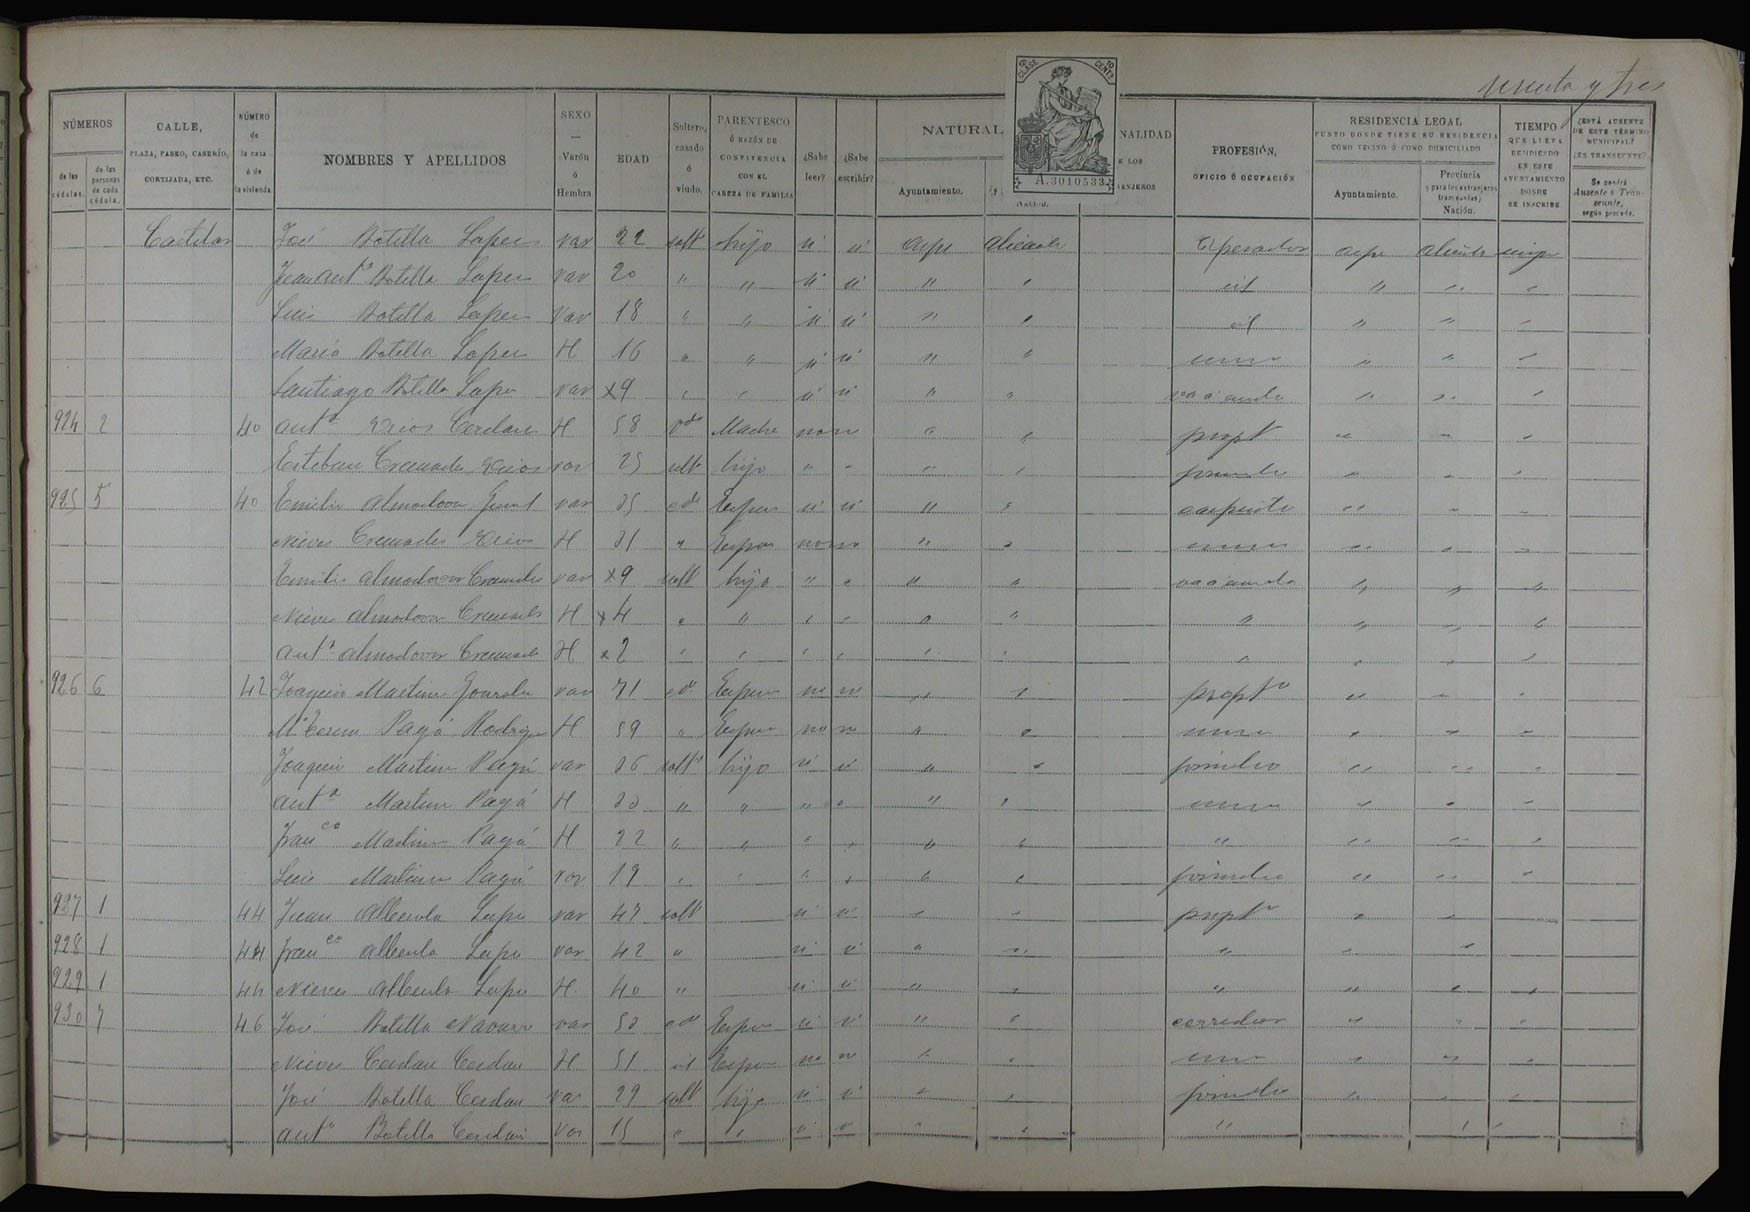 y tres
NÚMEROS
de las cédulas.
de las personas de cada cédula.
CALLE,
PLAZA, PASEO, CASERÍO,
CORTIJADA, ETC.
NÚMERO
de
la casa
ó de
la vivienda.
NOMBRES Y APELLIDOS
SEXO
—
Varón
ó
Hembra
EDAD
Soltero,
casado
ó
viudo.
PARENTESCO
Ó RAZÓN DE
CONVIVENCIA
CON EL
CABEZA DE FAMILIA
¿Sabe
leer?
¿Sabe
escribir?
NATURAL
Ayuntamiento.
(y
5ª CLASE
10 CENTS
A.3010533
NALIDAD
E LOS
ANJEROS
PROFESIÓN,
OFICIO Ó OCUPACIÓN
RESIDENCIA LEGAL
PUNTO DONDE TIENE SU RESIDENCIA
COMO VECINO Ó COMO DOMICILIADO
Ayuntamiento.
Provincia
y para los extranjeros
transeuntes)
Nación.
TIEMPO
QUE LLEVA
RESIDIENDO
EN ESTE
AYUNTAMIENTO
DONDE
SE INSCRIBE
¿ESTÁ AUSENTE
DE ESTE TÉRMINO
MUNICIPAL?
¿ES TRANSEUNTE?
Se pondrá
Ausente ó Tran-
seunte,
según proceda.
Castelar José Botella Lopez var 22 solt hijo si si Aspe Alicante Aspe Alicante
Juan Antº Botella Lopez var 20 " " si si " "
Luis Botella Lopez var 18 " " si si " "
Maria Botella Lopez H 16 " " si si " "
Santiago Botella Lope var x9 " " si si " "
924 2 40 Antª Cerdan H 58 vdª Madre no no " " propª
Esteban Cremades var 25 solt hijo " " " "
925 5 40 Emilio Almodovar var 35 cdº Esposo si si " " carpinte
Nieves Cremades H 31 " Esposa no no " "
Emilio Almodovar Cremades var x9 solt hijo " " " "
Nieves Almodovar Cremades H x4 " " " " " " "
Antª Almodovar Cremade H x2 " " " " " " "
926 6 42 Joaquin Martinez Gonzalez var 71 cdº Esposo no no " " propº
Mª Teresa Pagá Rodrig H 59 " Esposa no no " "
Joaquin Martinez Pagá var 36 soltº hijo si si " " jornalero
Antª Martinez Pagá H 30 " " " " " "
Franco Martinez Pagá H 22 " " " " " " "
Luis Martinez Pagá var 19 " " " " " " jornalero
927 1 44 Juan Alberola Lope var 47 solt si si " " propº
928 1 44 Franco Alberola Lope var 42 " si si " " "
929 1 44 Nieves Alberola Lope H 40 " si si " " "
930 7 46 José Botella Navarro var 50 cdº Esposo si si " " corredor
Nieves Cerdan Cerdan H 51 id Esposa no no " "
José Botella Cerdan var 29 solt hijo si si " " jornalero
Antº Botella Cerdan var 15 " " si si " " "